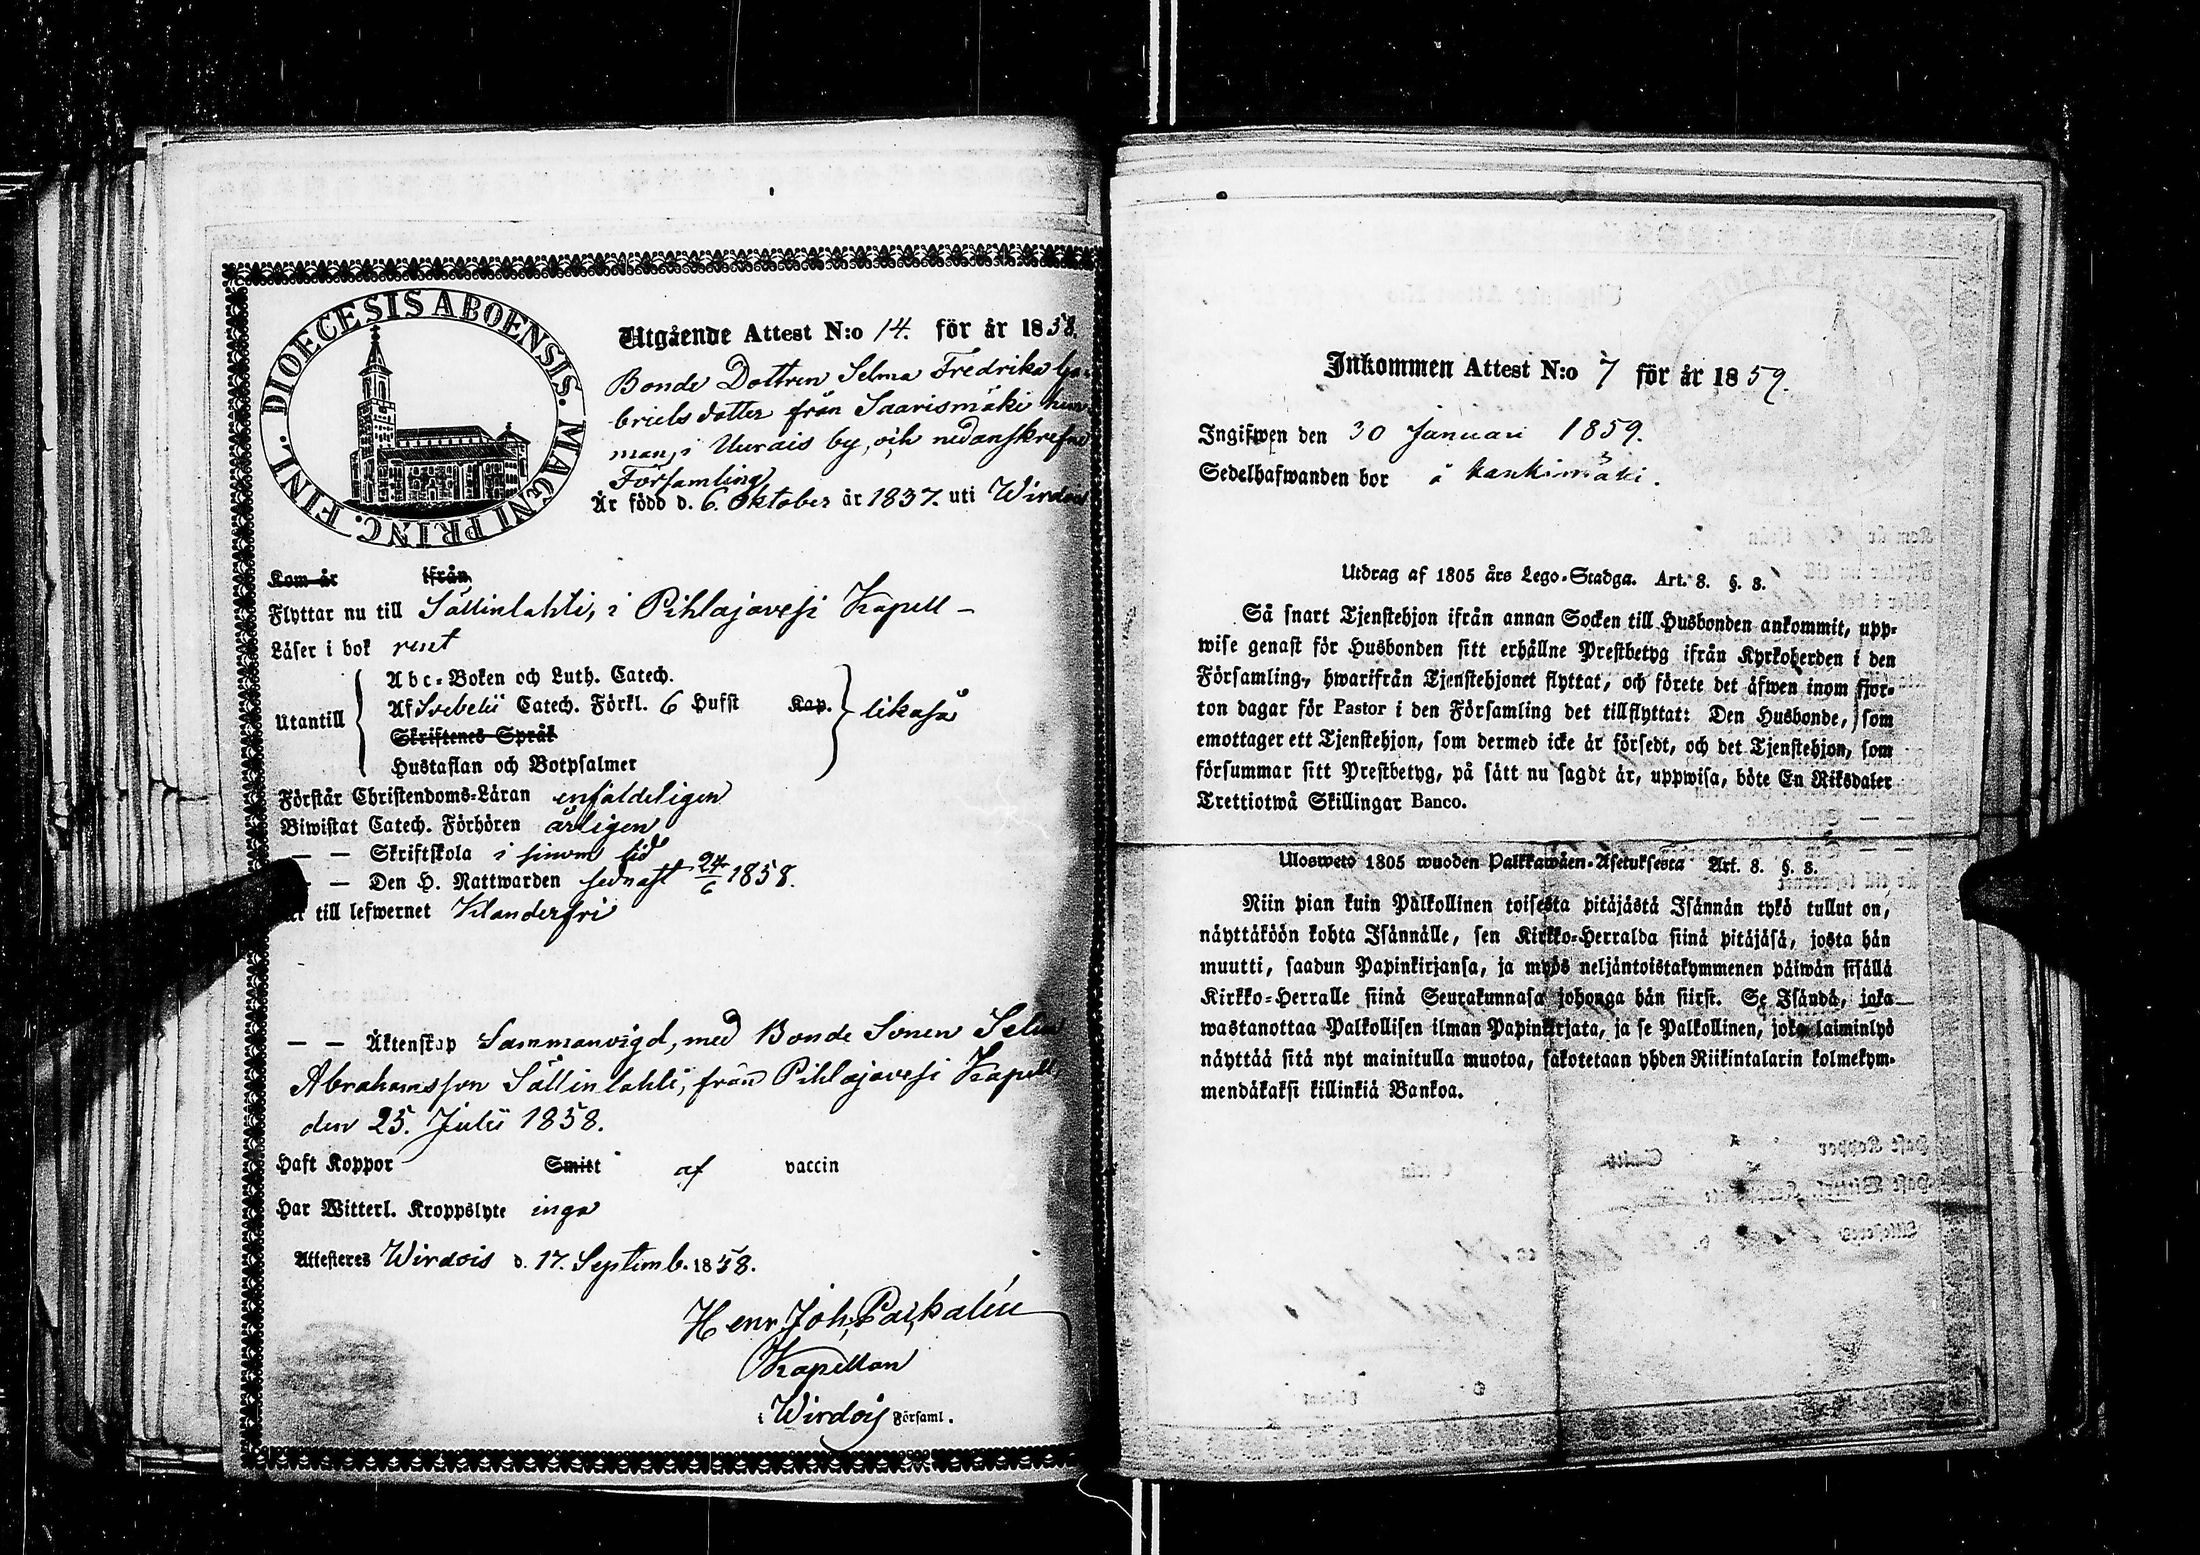 DIOECESIS ABOENSIS. MAGNI PRINC. FINL.
Utgående Attest N:o 14. för år 1858.
Bonde Dottren Selma Fredrika Ga-
briels dotter från Saarismäki hem-
man, i Uurais by, och nedanskrefne
Församling
Är född d. 6. Oktober år 1837. uti Wirdois
Kom år ifrån
Flyttar nu till Sällinlahti, i Pihlajavesi Kapell -
Läser i bok rent
Abc-Boken och Luth. Catech.
Utantill Af Svebelii Catech. Förkl. 6 Hufst Kap. likaså
Skriftenes Språk
Hustaflan och Botpsalmer
Förstår Christendoms-Läran enfaldeligen
Biwistat Catech. Förhören årligen
— — Skriftskola i sinom tid
— — Den H. Nattwarden sednast 24/6 1858.
Är till lefwernet Klanderfri
— — Äktenskap Sammanvigd, med Bonde Sonen
Abrahamsson Sällinlahti, från Pihlajavesi Kapell,
den 25. Julii 1858.
Haft Koppor Smitt af vaccin
Har Witterl. Kroppslyte inga
Attesteres Wirdois d. 17. Septemb. 1858.
Henr. Joh. Paskalín
Kapellan
i Wirdois Församl.
Inkommen Attest N:o 7 för år 1859.
Ingifwen den 30 Januari 1859.
Sedelhafwanden bor å kankimäki.
Utdrag af 1805 års Lego-Stadga. Art. 8. §. 8.
Så snart Tjenstehjon ifrån annan Socken till Husbonden ankommit, upp-
wise genast för Husbonden sitt erhållne Prestbetyg ifrån Kyrkoherden i den
Församling, hwarifrån Tjenstehjonet flyttat, och förete det äfwen inom fjor-
ton dagar för Pastor i den Församling det tillflyttat: Den Husbonde, som
emottager ett Tjenstehjon, som dermed icke är försedt, och det Tjenstehjon, som
försummar sitt Prestbetyg, på sätt nu sagdt är, uppwisa, böte En Riksdaler
Trettiotwå Skillingar Banco.
Uloswetö 1805 wuoden Palkkawäen-Asetuksesta Art. 8. §. 8.
Niin pian kuin Palkollinen toisesta pitäjästä Isännän tykö tullut on,
näyttäköön kohta Isännälle, sen Kirkko-Herralda siinä pitäjäsä, josta hän
muutti, saadun Papinkirjansa, ja myös neljäntoistakymmenen päiwän sisällä
Kirkko-Herralle siinä Seurakunnasa johonga hän siirst. Se Isändä, joka
wastanottaa Palkollisen ilman Papinkirjata, ja se Palkollinen, joka laiminlyö
näyttää sitä nyt mainitulla muotoa, sakotetaan yhden Riikintalarin kolmekym-
mendäkaksi killinkiä Bankoa.